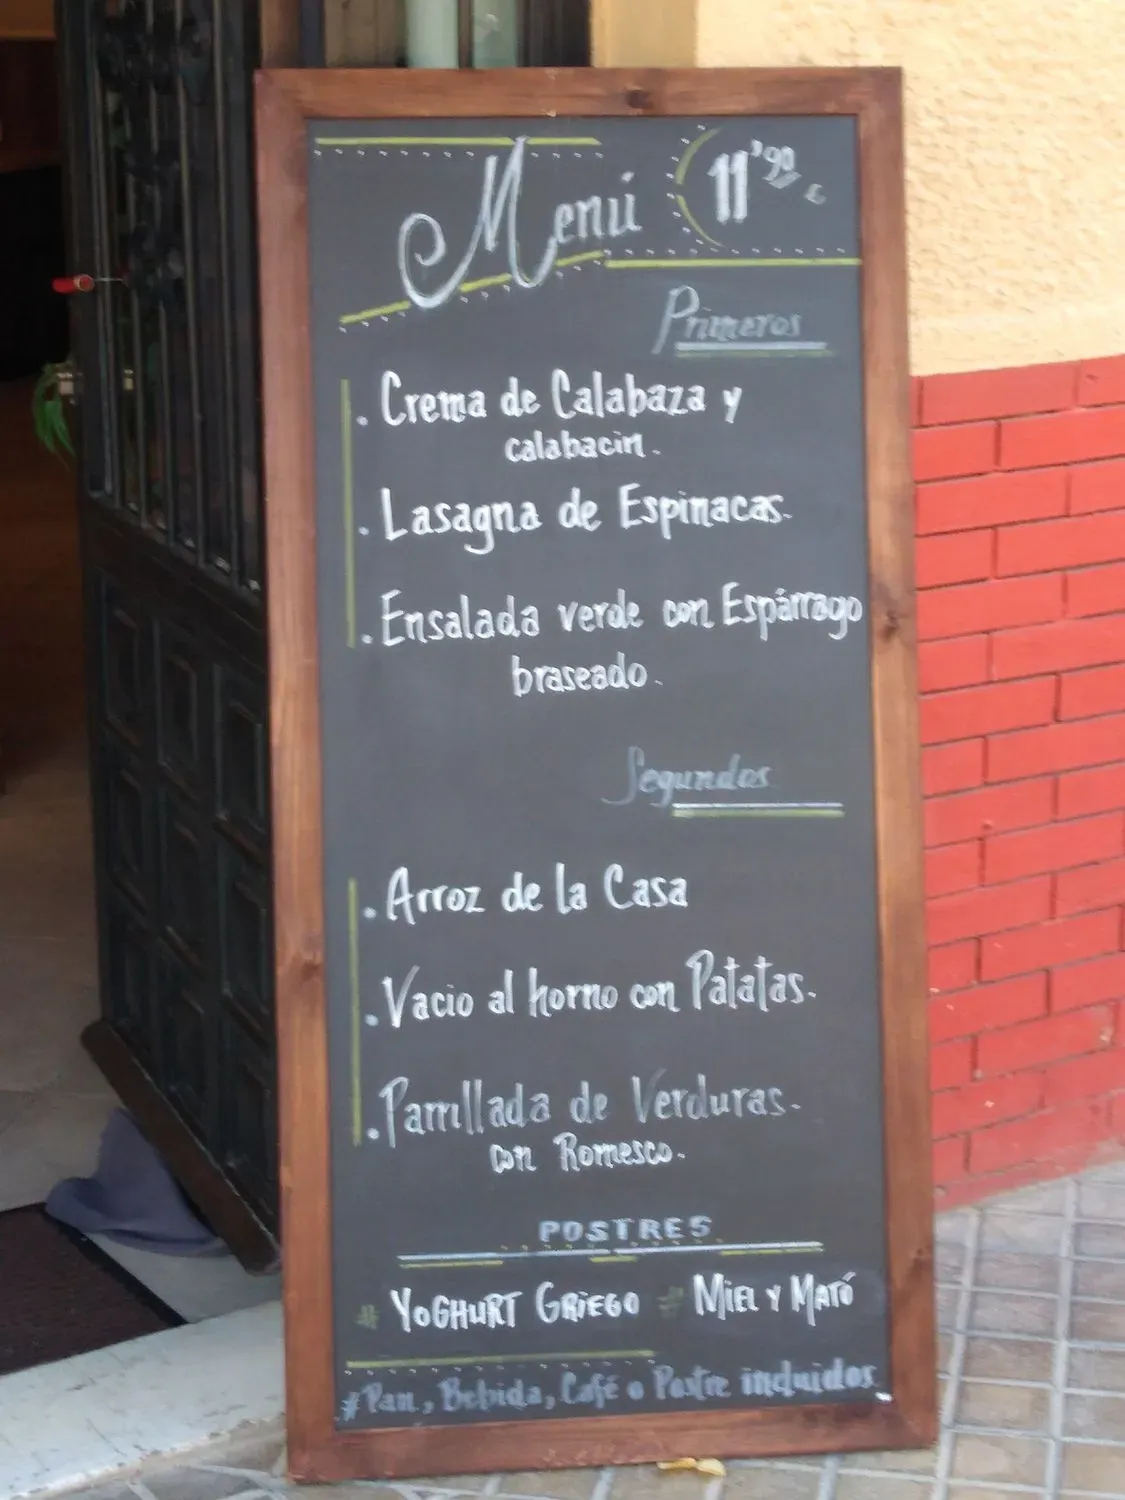 Menú 11'90 €
Primeros
. Crema de Calabaza y
calabacin.
. Lasagna de Espinacas.
. Ensalada verde con Espárrago
braseado.
Segundos
. Arroz de la Casa
. Vacio al horno con Patatas.
. Parrillada de Verduras.
con Romesco.
POSTRES
# YOGHURT GRIEGO # MIEL Y MATÓ
# Pan, Bebida, Café o Postre incluidos